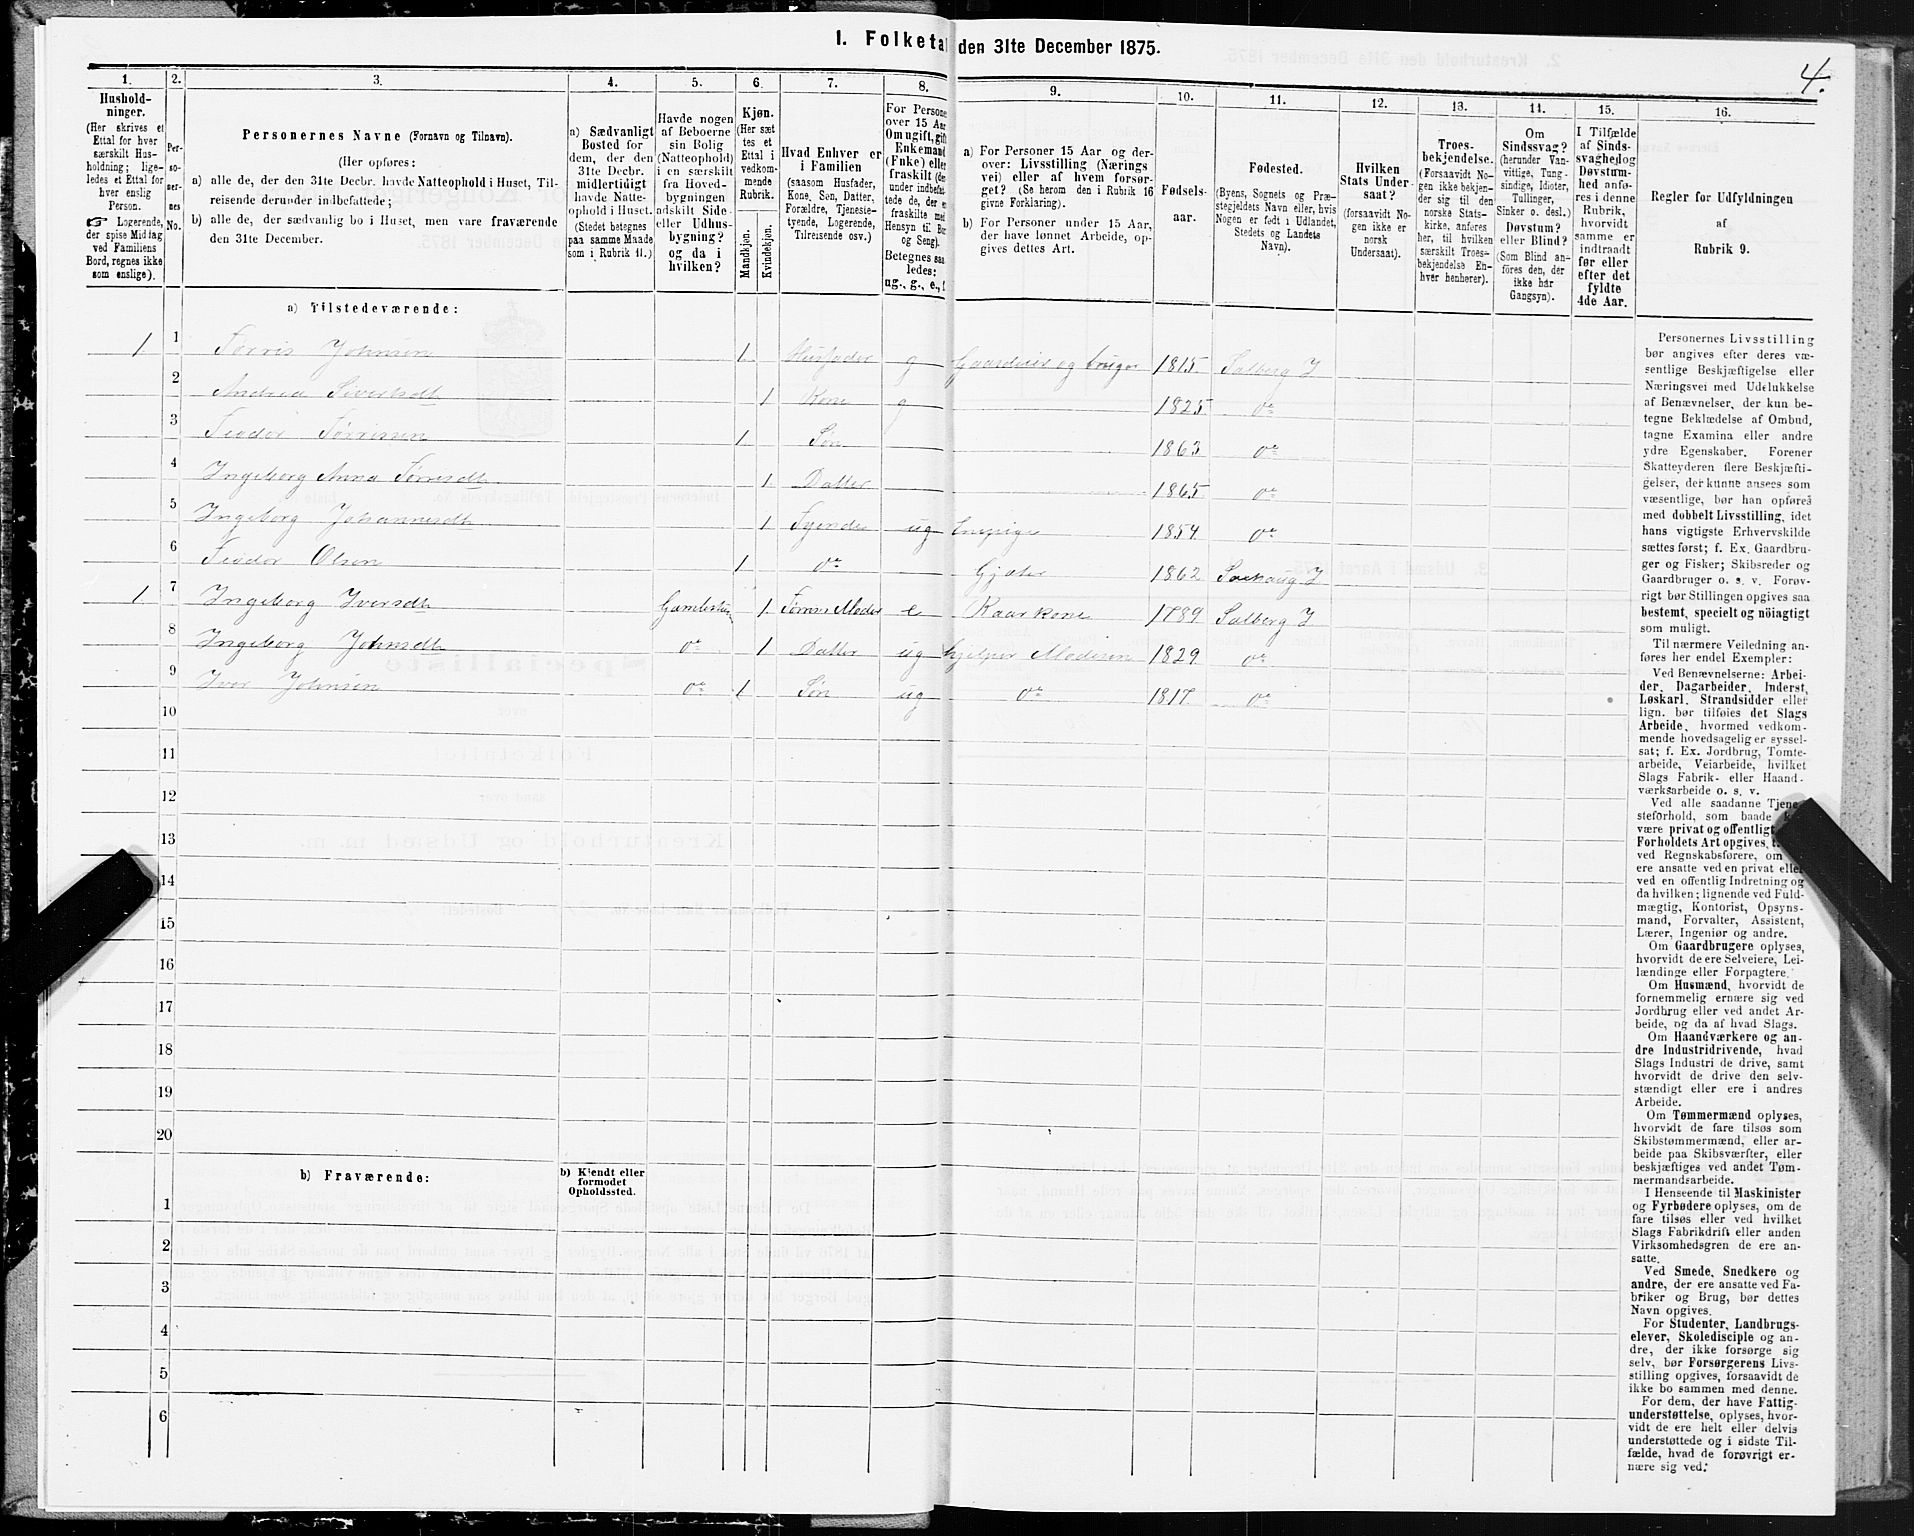 1. Folketal den 31te December 1875.
4.
1. 2. 3. 4. 5. 6. 7. 8. 9. 10. 11. 12. 13. 14. 15. 16.
Hushold-
ninger.
(Her skrives et
Ettal for hver
særskilt Hus-
holdning; lige-
ledes et Ettal for
hver enslig
Person.
☞ Logerende,
der spise Middag
ved Familiens
Bord, regnes ikke
som enslige).
Per-
so-
ner-
nes
No.
Personernes Navne (Fornavn og Tilnavn).
(Her opføres:
a) alle de, der den 31te Decbr. havde Natteophold i Huset, Til-
reisende derunder indbefattede;
b) alle de, der sædvanlig bo i Huset, men vare fraværende
den 31te December.
a) Sædvanligt
Bosted for
dem, der den
31te Decbr.
midlertidigt
havde Natte-
ophold i Huset.
(Stedet betegnes
paa samme Maade
som i Rubrik 11.)
Havde nogen
af Beboerne
sin Bolig
(Natteophold)
i en særskilt
fra Hoved-
bygningen
adskilt Side-
eller Udhus-
bygning?
og da i
hvilken?
Kjøn.
(Her sæt
tes et
Ettal i
vedkom-
mende
Rubrik.
Mandkjøn.
Kvindekjøn.
Hvad Enhver er
i Familien
(saasom Husfader,
Kone, Søn, Datter,
Forældre, Tjeneste-
tyende, Logerende,
Tilreisende osv.)
For Persone
over 15 Aar
Om ugift, gift
Enkemand
(Enke) eller
fraskilt (de
under indbefat-
tede de, de er
fraskilte med
Hensyn til Bor
og Seng).
Betegnes saa
ledes:
ug., g., e., f.
a) For Personer 15 Aar og der-
over: Livsstilling (Nærings
vei) eller af hvem forsør-
get? (Se herom den i Rubrik 16
givne Forklaring).
b) For Personer under 15 Aar,
der have lønnet Arbeide, op-
gives dettes Art.
Fødsels-
aar.
Fødested.
(Byens, Sognets og Præ-
stegjeldets Navn eller, hvis
Nogen er født i Udlandet,
Stedets og Landets
Navn).
Hvilken
Stats Under-
saat?
(forsaavidt No-
gen ikke er
norsk
Undersaat).
Troes-
bekjendelse.
(Forsaavidt No-
gen ikke bekjen-
der sig til den
norske Stats-
kirke, anføres
her, til hvilken
særskilt Troes-
bekjendelse En-
hver henhører).
Om
Sindssvag?
(herunder Van-
vittige, Tung-
sindige, Idioter,
Tullinger,
Sinker o. desl.)
Døvstum?
eller Blind?
(Som Blind an-
føres den, der
ikke har
Gangsyn).
I Tilfælde
af Sinds-
svaghed og
Døvstum-
hed anfø-
res i denne
Rubrik,
hvorvidt
samme er
indtraadt
før eller
efter det
fyldte
4de Aar.
Regler for Udfyldningen
af
Rubrik 9.
a) Tilstedeværende:
1. 1 Tørris Johnsen 1 Husfader g Gaardeier og bruger 1815 Salberg I
2 Andrea Sivertsdt 1 Kone g 1825 do
3 Teodor Tørrisen 1 Søn 1863 do
4 Ingeborg Anna Tørrisdt 1 Datter 1865 do
5 Ingeborg Johannesdt 1 Tyende ug 1854 do
6 Teodor Olsen 1 do Gjæter 1862
1. 7 Ingeborg Iversdt 1 Tørris Moder e Kaarkone 1789 Salberg I
8 Ingeborg Johnsdt do 1 Datter ug hjelper Moderen 1829 do
9 Iver Johnsen do 1 Søn ug do 1817 do
10
11
12
13
14
15
16
17
18
19
20
b) Fraværende:
b) Kjendt eller
formodet
Opholdssted.
1
2
3
4
5
6
Personernes Livsstilling
bør angives efter deres væ-
sentlige Beskjæftigelse eller
Næringsvei med Udelukkelse
af Benævnelser, der kun be-
tegne Beklædelse af Ombud,
tagne Examina eller andre
ydre Egenskaber. Forener
Skatteyderen flere Beskjæfti-
gelser, der kunne ansees som
væsentlige, bør han opføres
med dobbelt Livsstilling, idet
hans vigtigste Erhvervskilde
sættes først; f. Ex. Gaardbru-
ger og Fisker; Skibsreder og
Gaardbruger o. s. v. Forøv-
rigt bør Stillingen opgives saa
bestemt, specielt og nøiagtigt
som muligt.
Til nærmere Veiledning an-
føres her endel Exempler:
Ved Benævnelserne: Arbei-
der, Dagarbeider, Inderst,
Løskarl, Strandsidder eller
lign. bør tilføies det Slags
Arbeide, hvormed vedkom-
mende hovedsagelig er syssel-
sat; f. Ex. Jordbrug, Tomte-
arbeide, Veiarbeide, hvilket
Slags Fabrik- eller Haand-
værksarbeide o. s. v.
Ved alle saadanne Tjene-
steforhold, som baade
være privat og offentligt,
Forholdets Art opgives,
ved Regnskabsførere, om
ere ansatte ved en privat eller
ved en offentlig Indretning og
da hvilken; lignende ved Fuld-
mægtig, Kontorist, Opsyns-
mand, Forvalter, Assistent,
Lærer, Ingeniør og andre.
Om Gaardbrugere oplyses,
hvorvidt de ere Selveiere, Lei-
lændinge eller Forpagtere.
Om Husmænd, hvorvidt de
fornemmelig ernære sig ved
Jordbrug eller ved andet Ar-
beide, og da af hvad Slags.
Om Haandværkere og an-
dre Industridrivende, hvad
Slags Industri de drive, samt
hvorvidt de drive den selv-
stændigt eller ere i andres
Arbeide.
Om Tømmermænd oplyses,
hvorvidt de fare tilsøs som
Skibstømmermænd, eller ar-
beide paa Skibsværfter, eller
beskjæftiges ved andet Tøm-
mermandsarbeide.
I Henseende til Maskinister
og Fyrbødere oplyses, om de
fare tilsøs eller ved hvilket
Slags Fabrikdrift eller anden
Virksomhedsgren de ere an-
satte.
Ved Smede, Snedkere og
andre, der ere ansatte ved Fa-
briker og Brug, bør dettes
Navn opgives.
For Studenter, Landbrugs-
elever, Skoledisciple og an-
dre, der ikke forsørge sig
selv, bør Forsørgerens Livs-
stilling opgives, forsaavidt de
ikke bo sammen med denne.
For dem, der have Fattig-
understøttelse, oplyses, hvor-
vidt de ere helt eller delvis
understøttede og i sidste Til-
fælde, hvad de forøvrigt er-
nære sig ved.